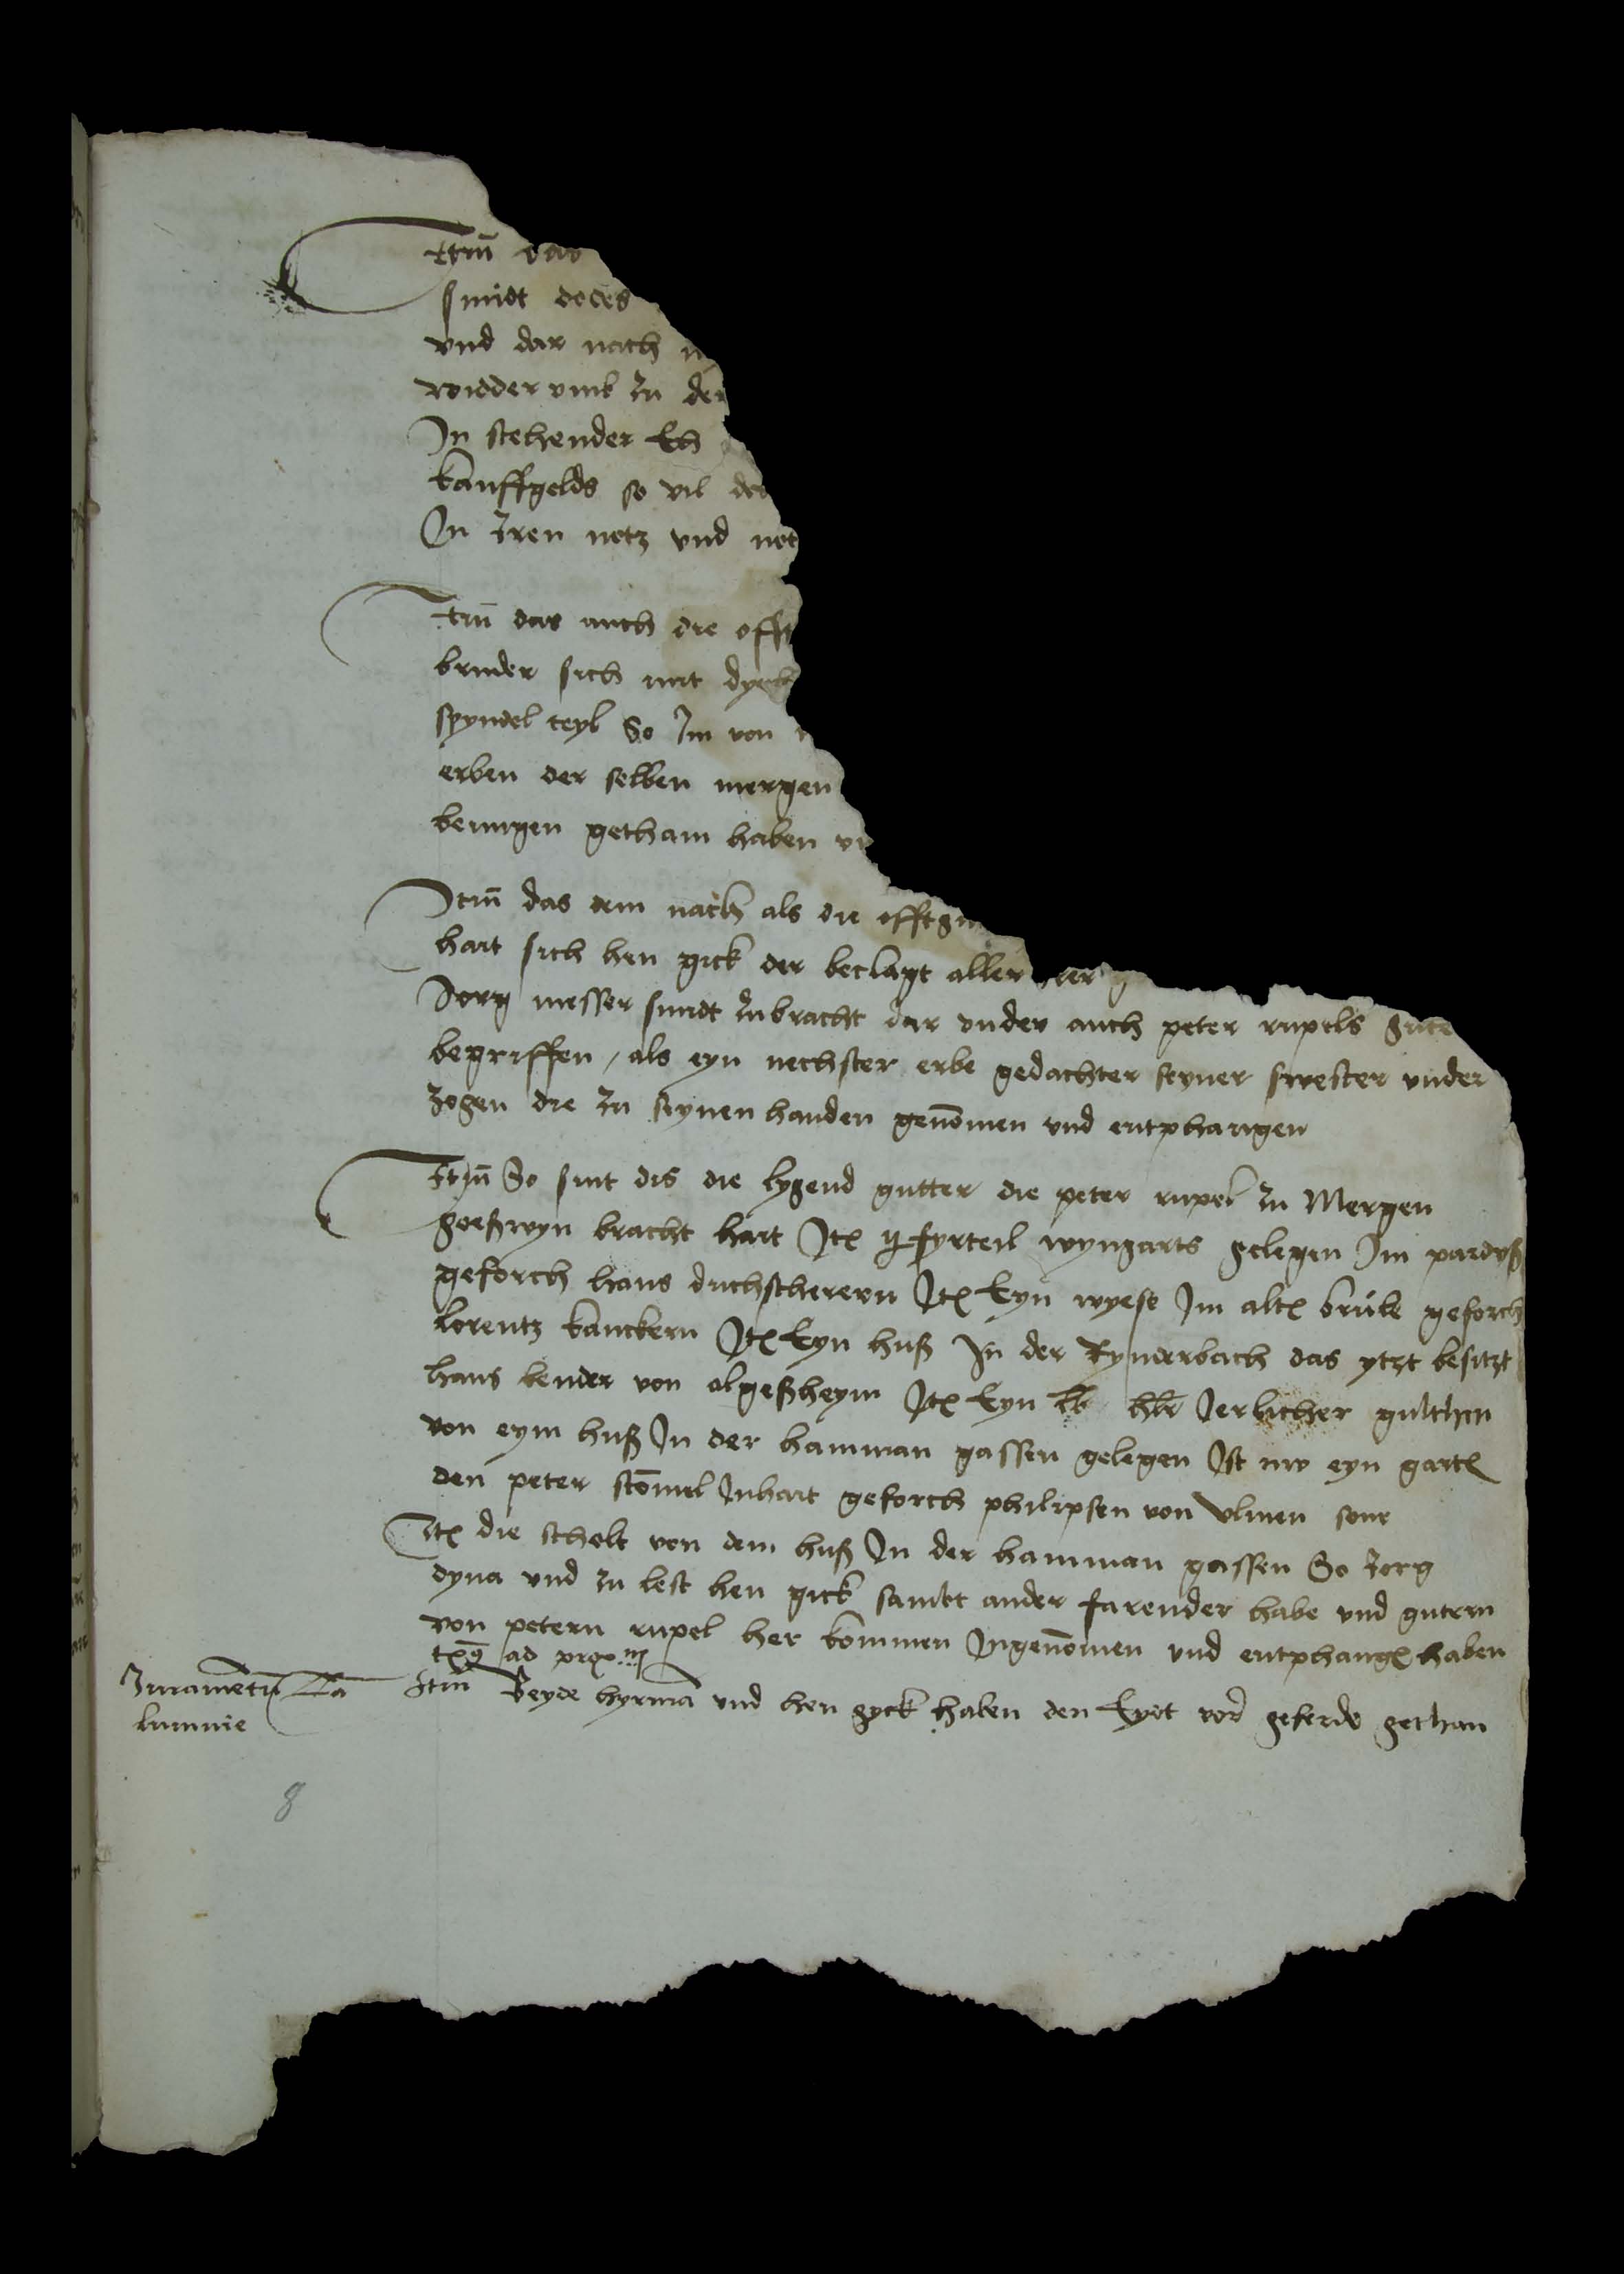 Itm̄ das
smidt doces
vnd dar nach
widder vmb zu der
In stehender Eh
kauffgelds so vil der
In Iren notz vnd not
Itm̄ das auch die offt
bruder sich mit dyck
spyndel teyl So Im von
erben der selben mergen
berurgen gethann haben vn
Itm̄ das dem nach als die offtgn
hatt sich hen gick der beclagt aller
Jorg messer smidt zubracht dar vnder auch peter rupels gute
begriffen / als eyn nechster erbe gedachter seyner swester vnder
zogen die zu synen handen genōmen vnd entphangen
Itm̄ So sint dis die lygend gutter die peter rupel zu Mergen
goeßwyn bracht hatt Itē ij fyrteil wyngarts gelegen Im pardyß
geforch hans duchscherern Itē Eyn wyese Im altē brule geforch
lorentz kanckern Itē Eyn huß In der Rynderbach das ytzt besitzt
hans bender von olgeßheym Itē Eyn lb hlr Jerlicher gulthen
von eym huß In der hamman gassen gelegen Ist nw eyn gartē
den peter stōmel Inhatt geforch philipsen von vlmen sone
Itē die scholt von dem huß In der hamman gassen So Jorg
dyna vnd zu lest hen gick sambt ander farender habe vnd gutern
von petern rupel her kommen Ingenōmen vnd entphangē haben
Itm̄ Beyde hyrmā vnd hen gyck haben den Eydt vor geferde gethan
Juramētū
lumnie
8